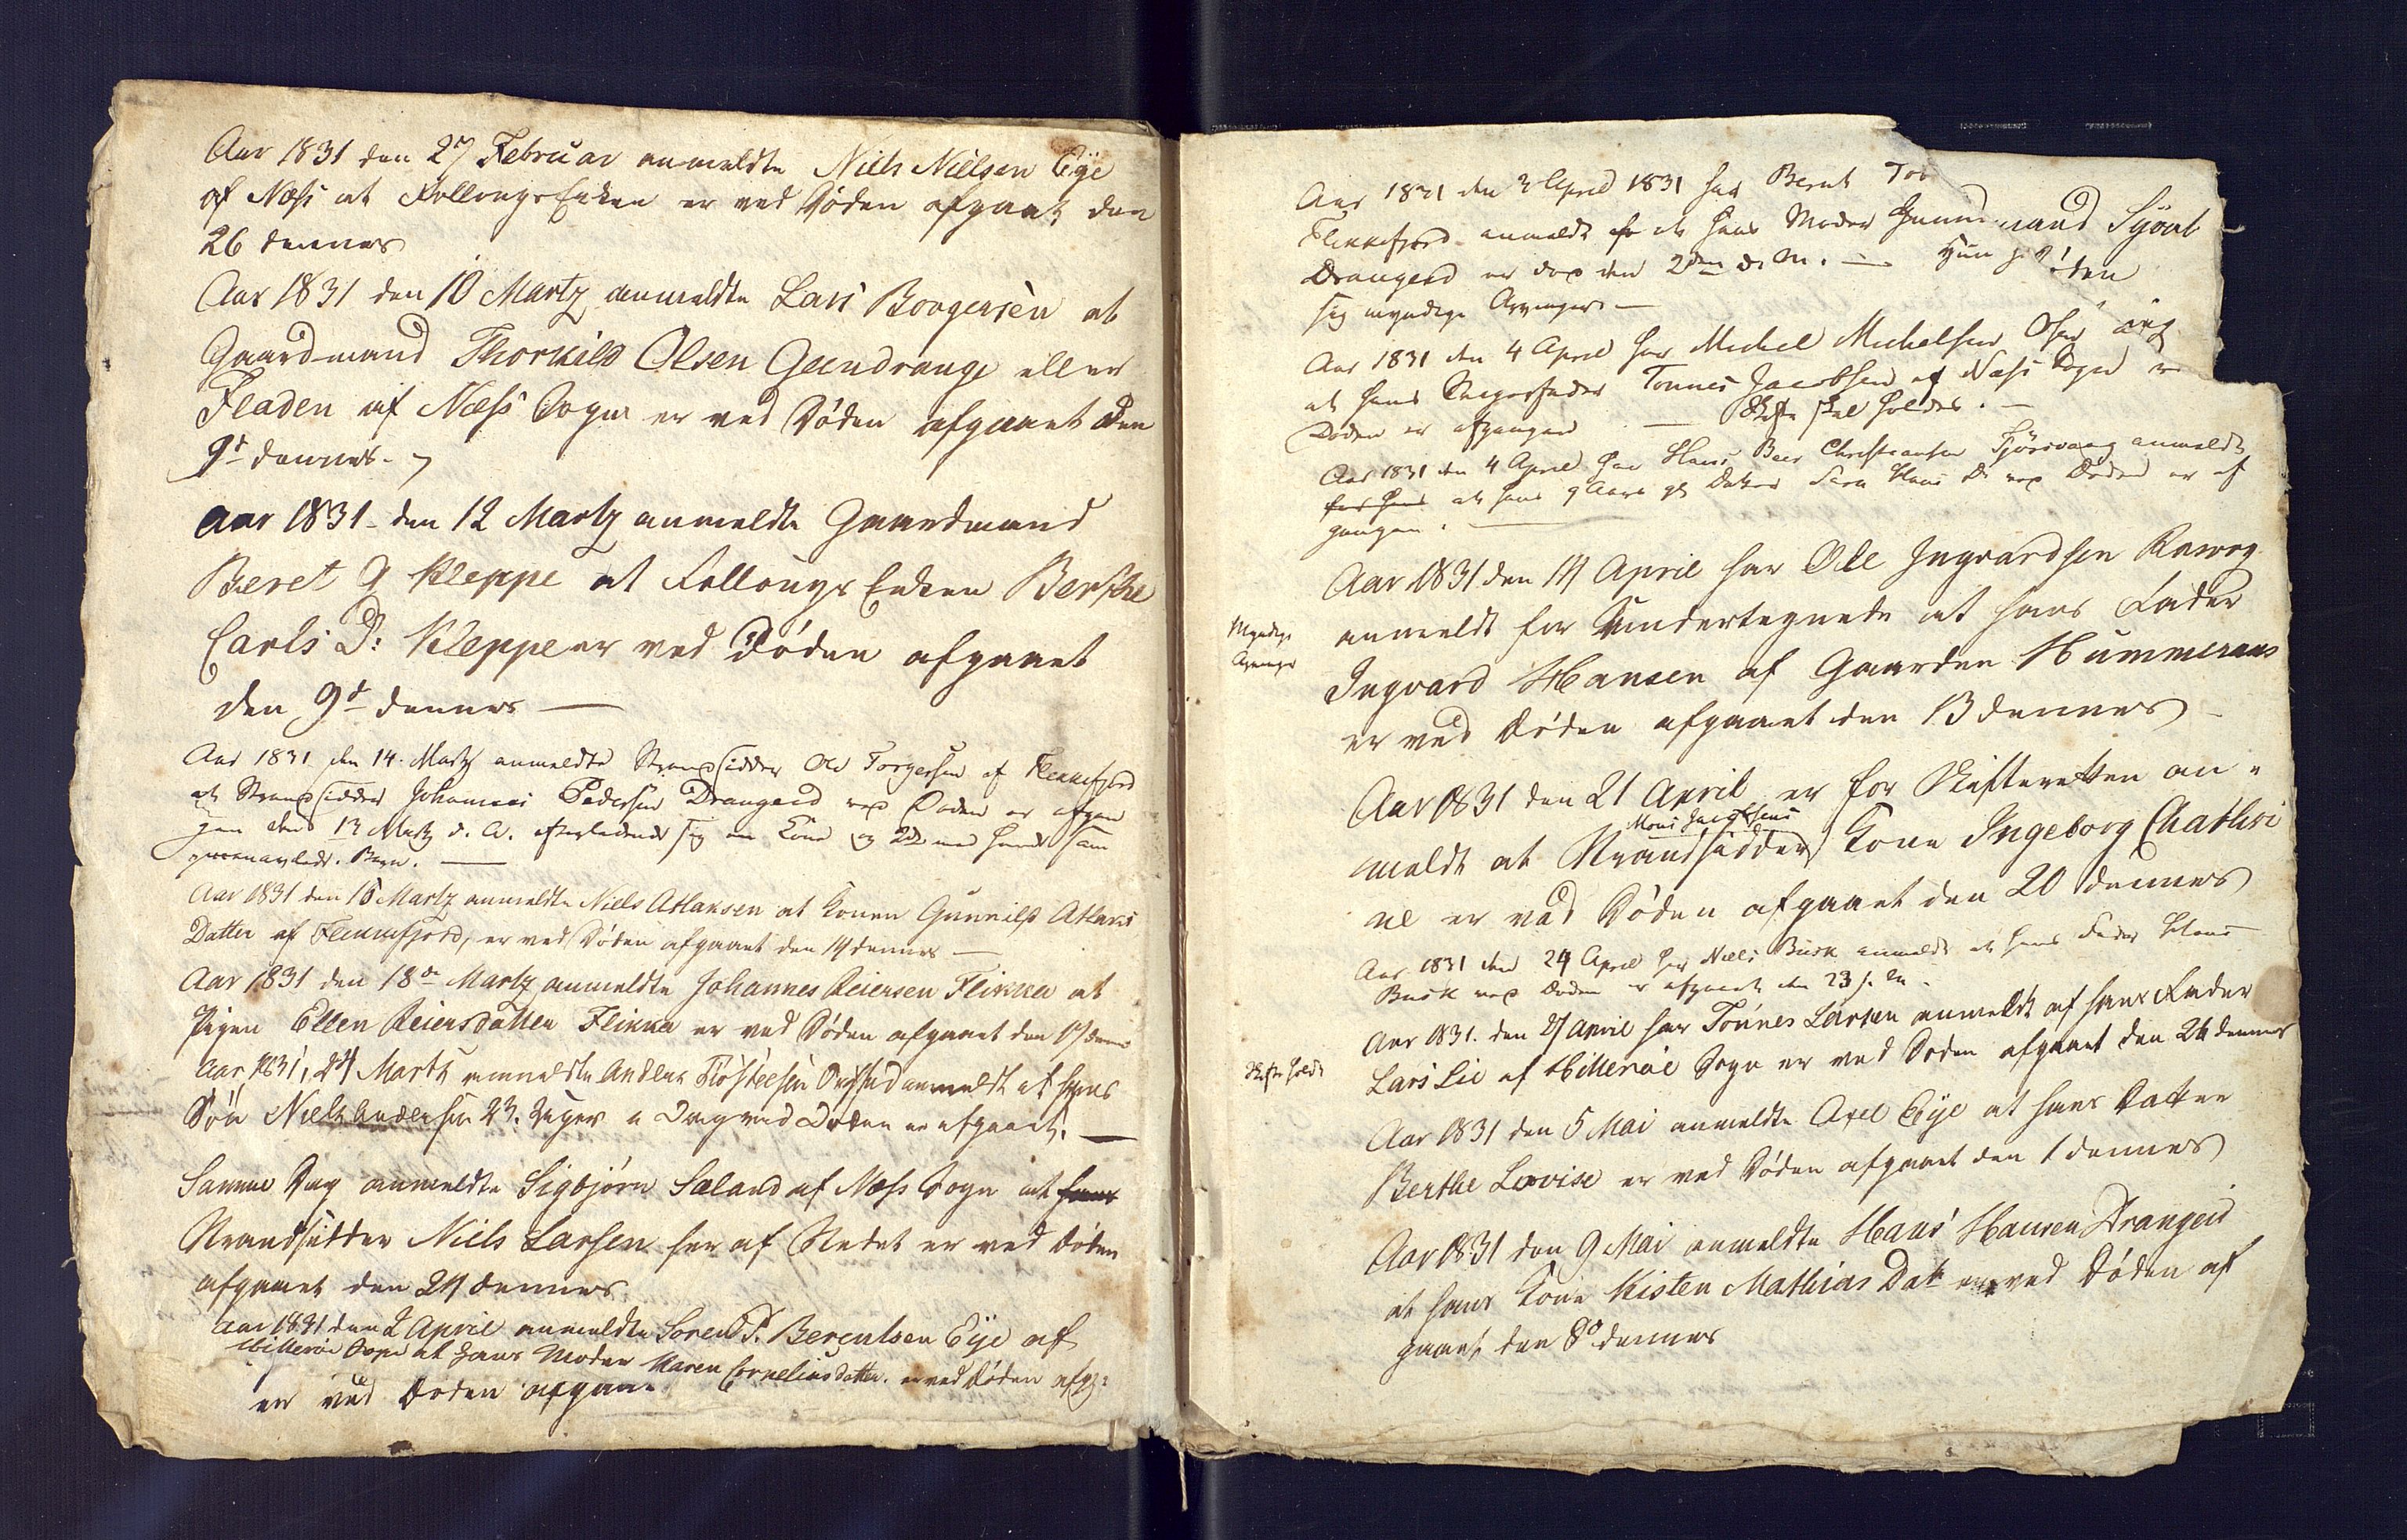 Aar 1831 den 27 Februar anmeldte Niels Nielsen Eÿe
af Næss at Follougs Enken er ved Døden afgaaet den
26 dennes
Aar 1831 den 10 Martz anmeldte Lars Boogersen at
Gaardmand Thorkild Olsen Geendrange eller
Fladen af Næss Sogn er ved Døden afgaaet den
9d dennes.
Aar 1831 den 12 Martz anmeldte Gaardmand
Beret G Kleppe at Follougs Enken Berthe
Carls D: Kleppe er ved Døden afgaaet
den 9d dennes —
Aar 1831 den 14. Martz anmeldte Strandsidder Ole Torgersen af Flekkefjord
at Strandsidder Johannes Pedersen Drangeid ved Døden er afgaa
den 13 Martz d. A. efterladende sig en Kone og med hende sam
avlede Børn. —
Aar 1831 den 16 Martz anmeldte Niels Atlaksen at Konen Gunnild Atlaks
Datter af Flekkefjord, er ved Døden afgaaet den 14 dennes —
Aar 1831 den 18de Martz anmeldte Johannes Reiersen Flikka at
Pigen Ellen Reiersdatter Flikka er ved Døden afgaaet den 17 denn
Aar 1831, 24 Martz anmeldte Anders anmeldt at hans
Søn Niels Andersen 23. Uger Dag ved Døden er afgaaet. —
Samme Dag anmeldte Sigbjørn Sæland af Næss Sogn at hans
Strandsidder Niels Larsen her af Stedet er ved Døden
afgaaet den 24 dennes
Aar 1831 den 2 April anmeldte Soren T. Berentsen Eÿe af
Hitterøe Sogn at hans Moder Karen Cornelius datter. er ved Døden afg:
er ved Døden afgaae
Aar 1831 den 3 April 1831 har Bernt Tob
Flekkefjord anmeldt at hans Moder mand Sÿvert
Drangeid er død den 2den d. M. — Hun den
sig myndige Arvinger —
Aar 1831 den 4 April har Michel Michelsen
at hans Svigerfader Tonnes Jacobsen af Næss Sogn
Døden er afgangen — Skifte skal holdes. —
Aar 1831 den 4 April har Hans Beer Christiansen anmeldt
for hans at hans 9 Aars gl Datter Hans Dr ved Døden er af
gangen. —
Aar 1831 den 14 April har Ole Ingvardsen
Myndige
Arvinger
anmeldt for Undertegnede at hans Fader
Ingvard Hansen af Gaarden Hummeraas
er ved Døden afgaaet den 13 dennes —
Aar 1831 den 21 April er for Skifteretten an-
Mons
meldt at Strandsidder Kone Ingeborg Chathri
ne er ved Døden afgaaet den 20 dennes
Aar 1831 den 24 April har Niels Busk anmeldt at hans Fader Hans
Busk ved Døden er afgaaet den 23 d. M.
Aar 1831. den 27 April har Tønnes Larsen anmeldt at hans Fader
Skifte holdt
Lars Lie af Hitterøe Sogn er ved Døden afgaaet den 26 dennes
Aar 1831 den 5 Mai anmeldte Axel Eÿe at hans Datter
Berthe Lovise er ved Døden afgaaet den 1 dennes
Aar 1831 den 9 Mai anmeldte Hans Hansen Drangeid
at hans Kone Kisten Mathias Datr er ved Døden af
gaaet den 8d dennes